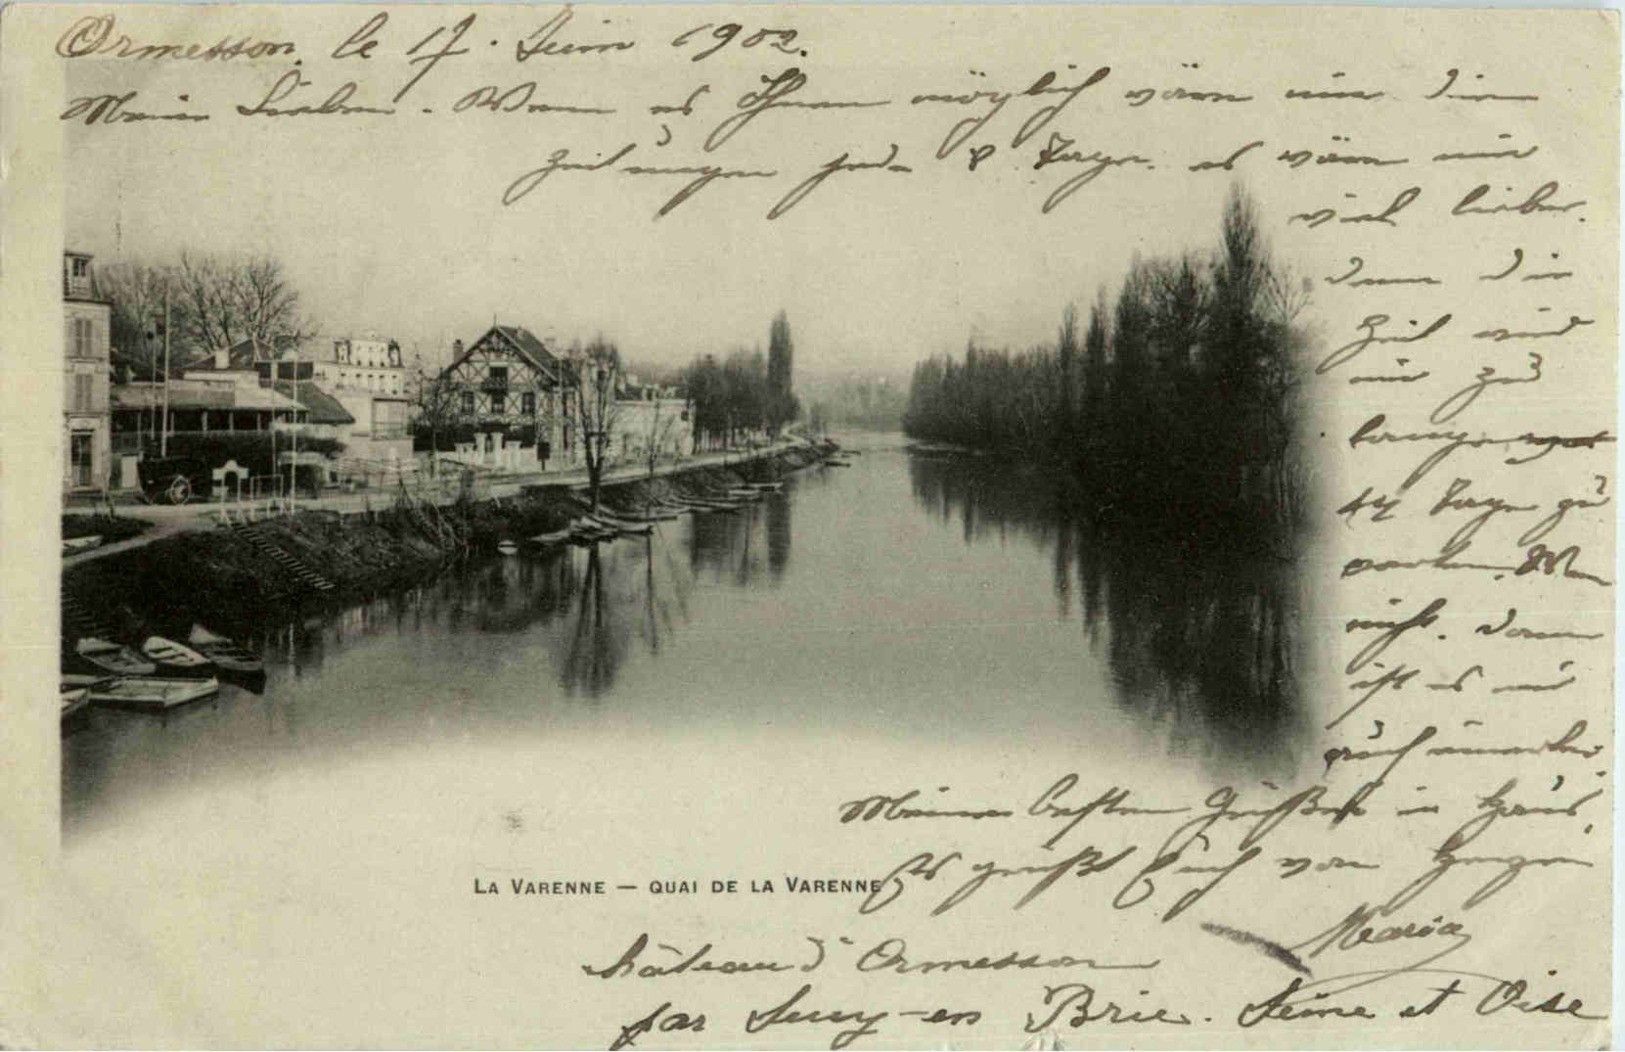 Ormesson, le 17. Juin 1902.
Meine Lieben. Wenn es Ihnen möglich wäre mir die
Zeitungen jede 8 Tage. es wäre mir
viel lieber.
denn die
Zeit wird
mir zu
lange
14 Tage zu
warten. Wen
nicht. dann
ist es mir
auch
Meine besten Grüße in Haus,
Es grüßt Euch von Herzen
LA VARENNE — QUAI DE LA VARENNE
Maria
château d'Ormesson
par Sucy-en Brie. Seine et Oise